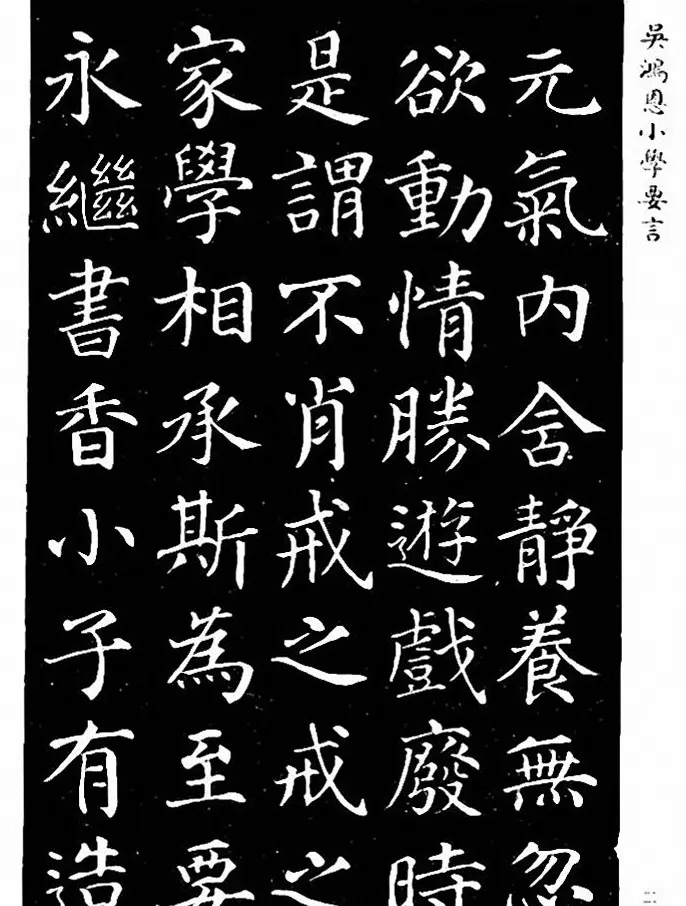 吳鴻恩小學要言
元氣內舍靜養無忽
欲動情勝遊戲廢時
是謂不肖戒之戒之
家學相承斯為至要
永繼書香小子有造